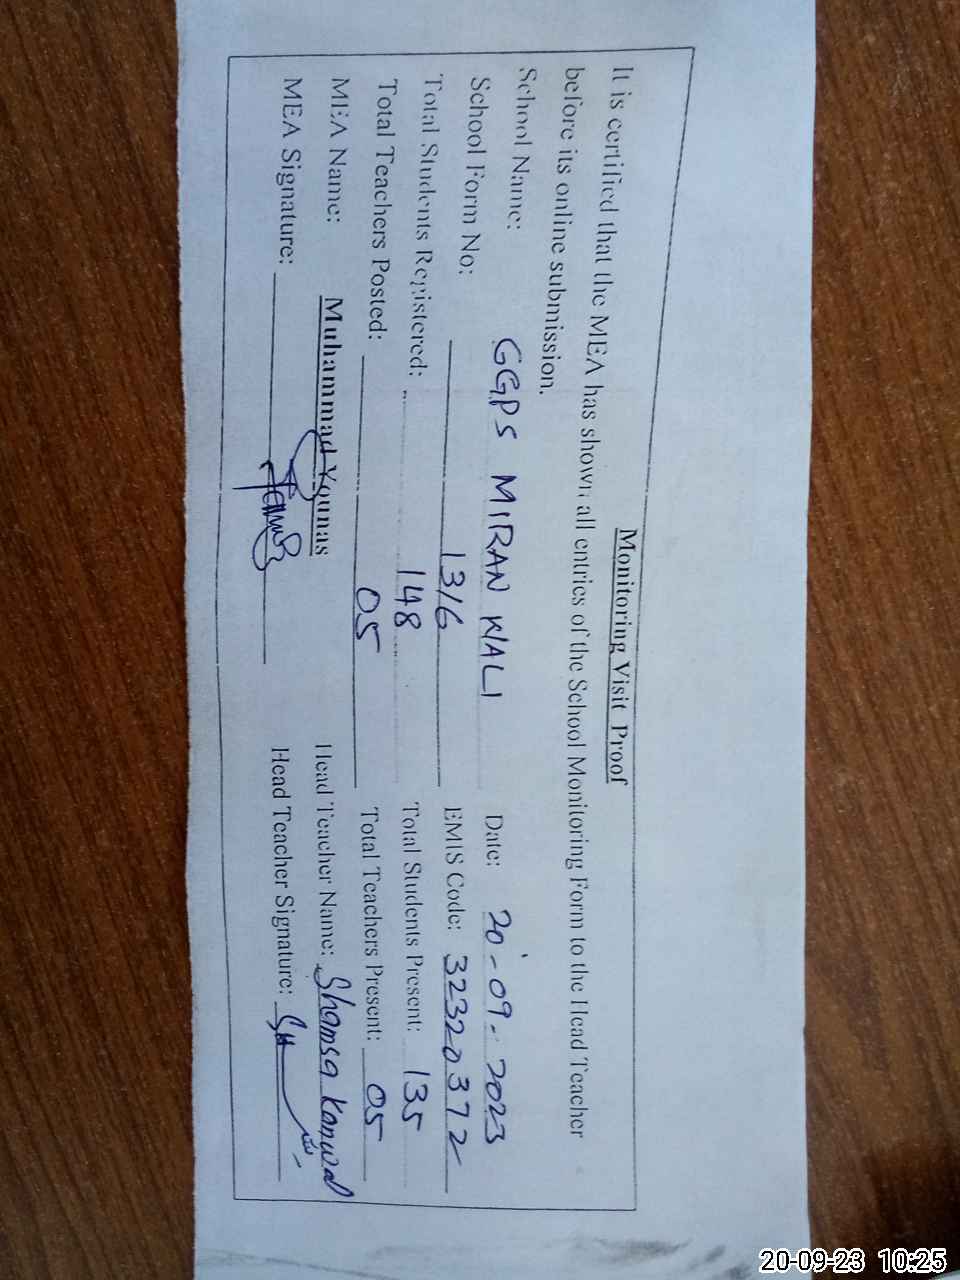 Monitoring Visit Proof
It is certified that the MEA has shown all entries of the School Monitoring Form to the Head Teacher
before its online submission.
School Name: GGPS MIRAN WALI Date: 20-09-2023
School Form No: 1316 EMIS Code: 32320372
Total Students Registered: 148 Total Students Present: 135
Total Teachers Posted: 05 Total Teachers Present: 05
MEA Name: Muhammad Younas Head Teacher Name: Shamsa Kanwal
MEA Signature: Head Teacher Signature:
20-09-23 10:25